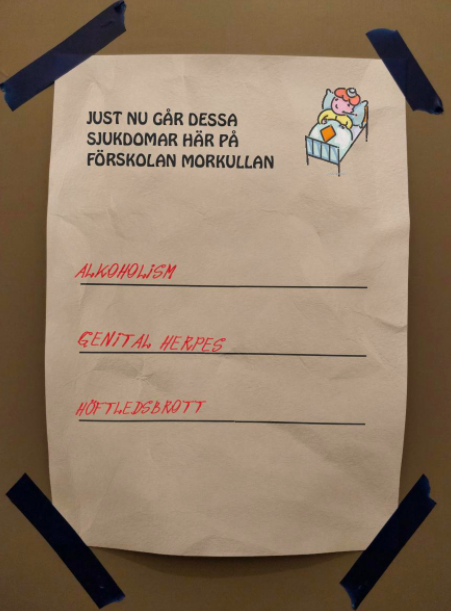 JUST NU GÅR DESSA
SJUKDOMAR HÄR PÅ
FÖRSKOLAN MORKULLAN
ALKOHOLISM
GENITAL HERPES
HÖFTLEDSBROTT